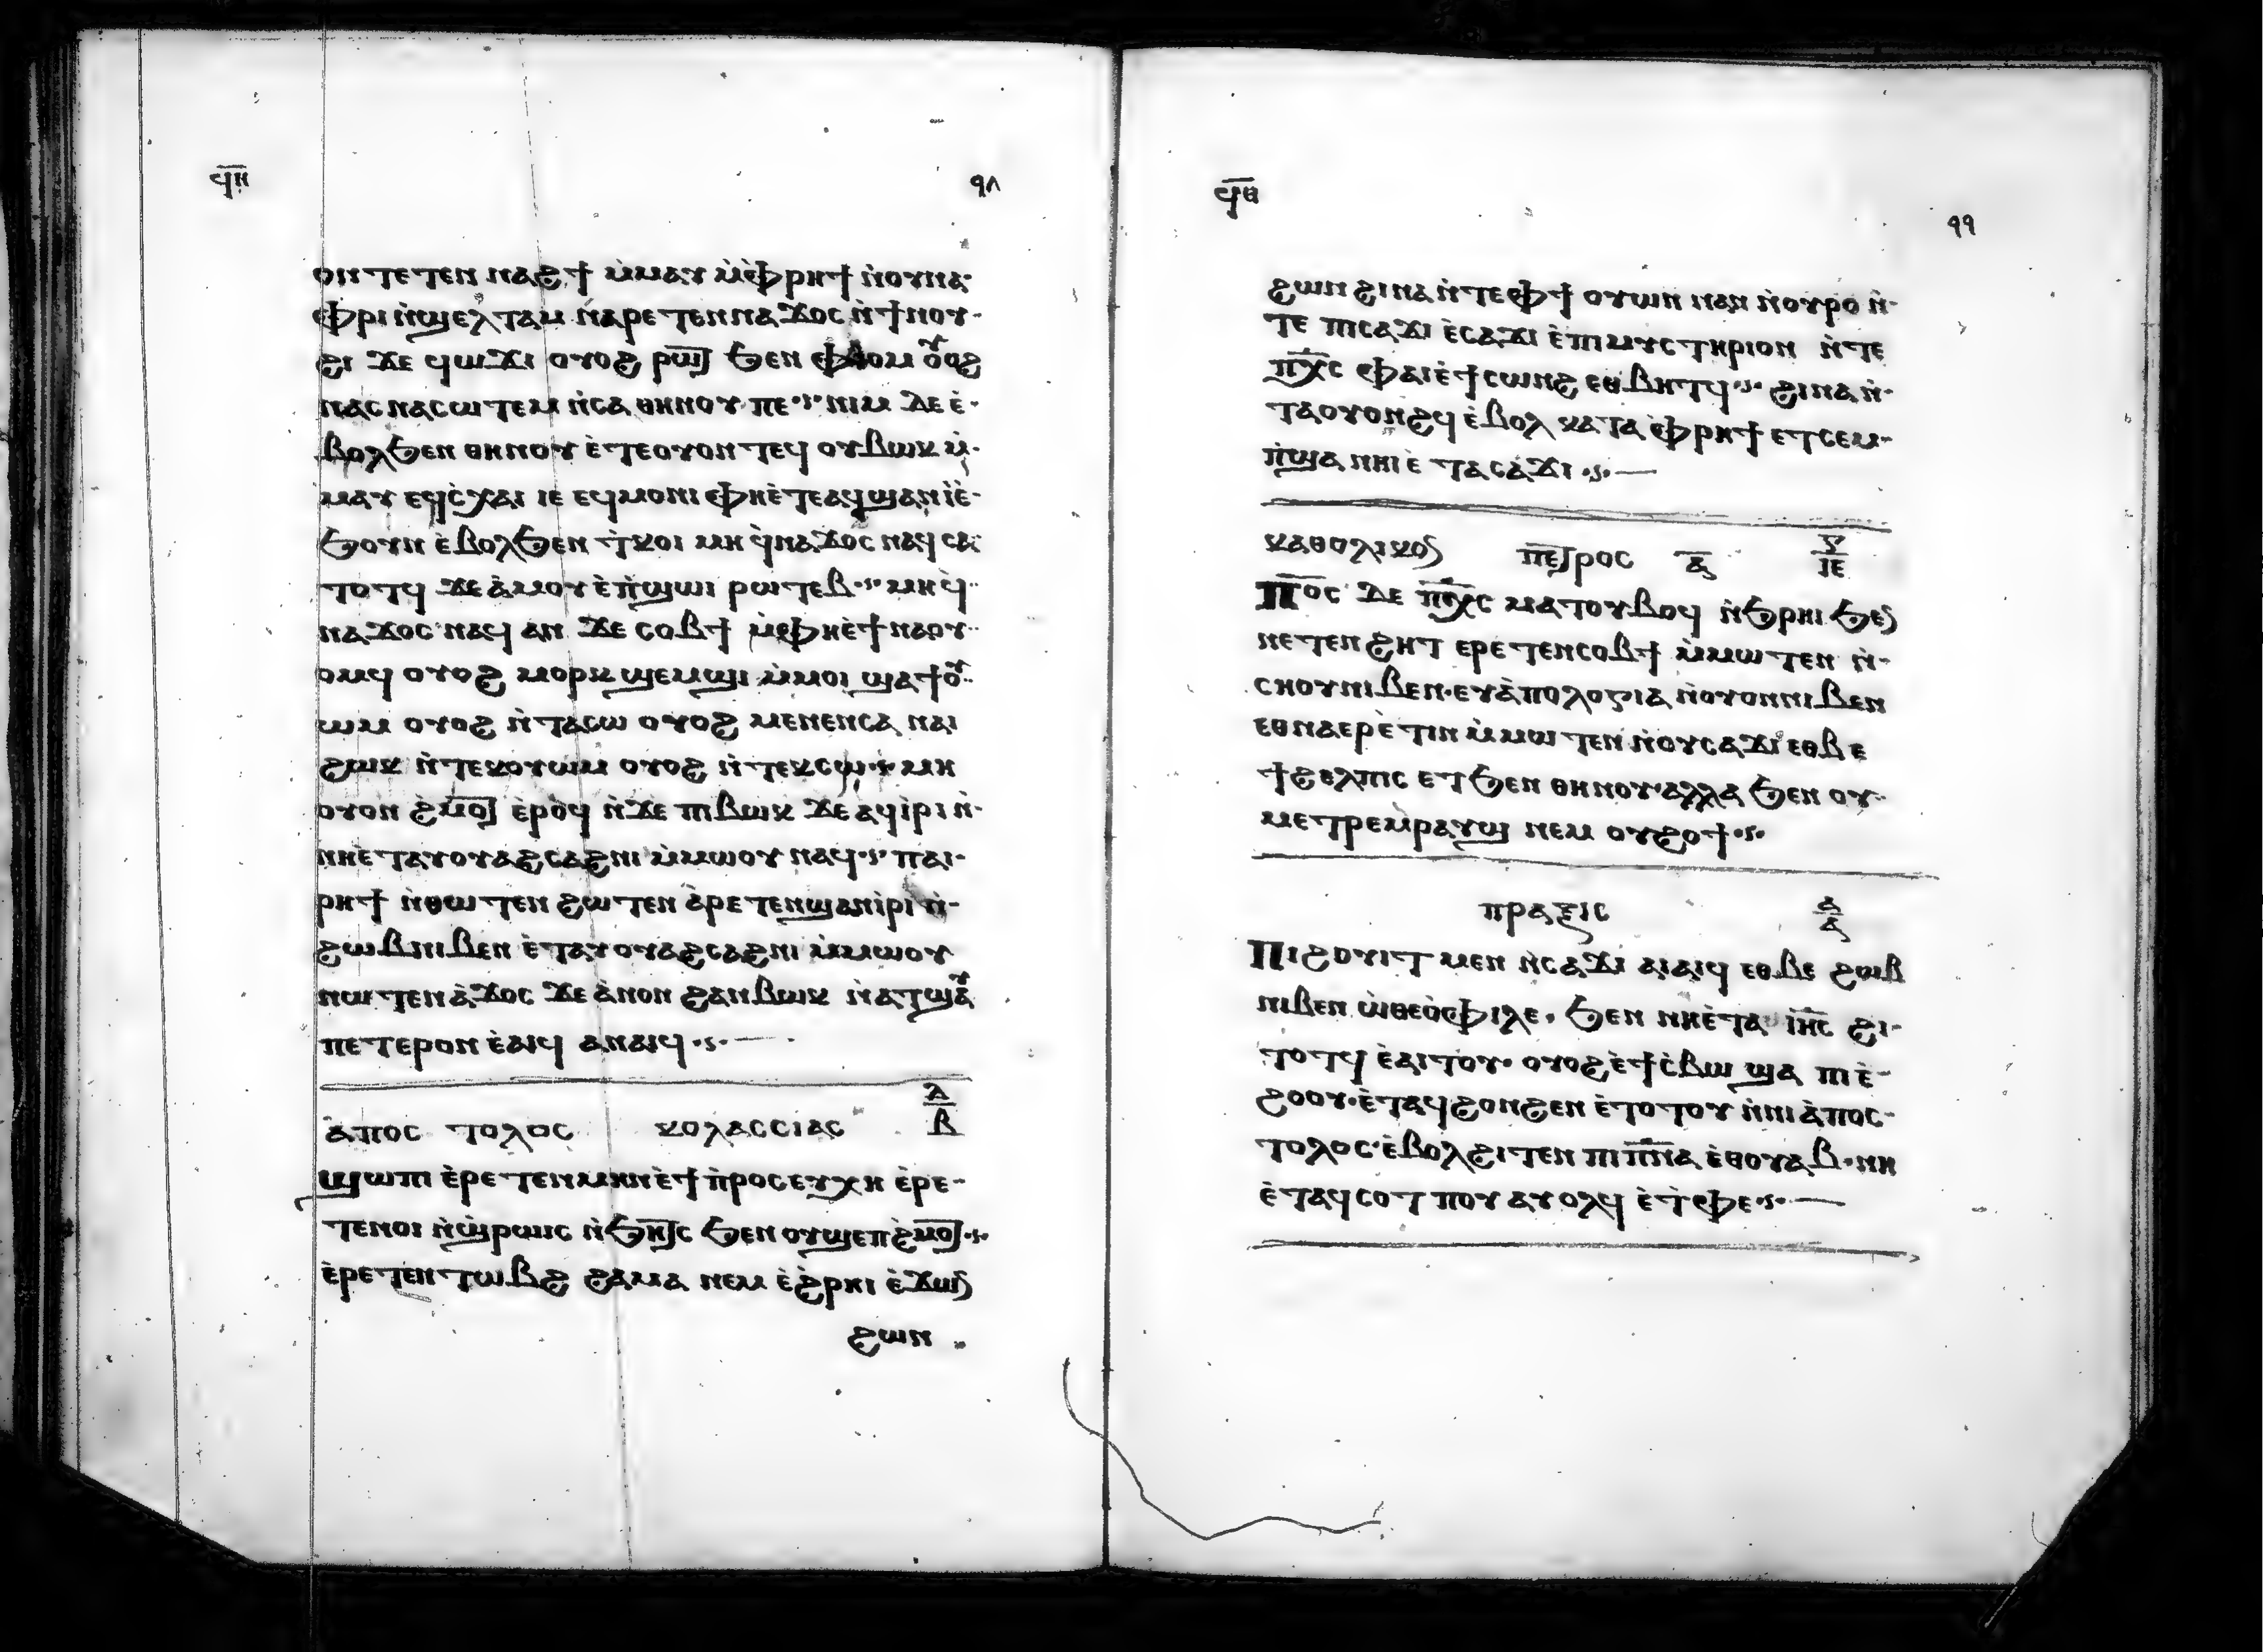 ϥ̅ⲏ̅ ٩٨
ⲟⲛ ⲧⲉⲧⲉⲛ ⲛⲁϩϯ ⲙ̀ⲙⲁⲩ ⲙ̀ⲫⲣⲏϯ ⲛ̀ⲟⲩⲛⲁ
ⲫⲣⲓ ⲛ̀ϣⲉⲗⲧⲁⲙ ⲛⲁⲣⲉⲧⲉⲛⲛⲁϫⲟⲥ ⲛ̀ϯⲛⲟⲩ-
ϩⲓ ϫⲉ ϥⲱϫⲓ ⲟⲩⲟϩ ⲣⲱⲧ̅ ϧⲉⲛ ⲫⲓⲟⲙ ⲟⲩⲟϩ
ⲛⲁⲥⲛⲁⲥⲱⲧⲉⲙ ⲛ̀ⲥⲁ ⲑⲏⲛⲟⲩ ⲡⲉ ⲛⲓⲙ ⲇⲉ ⲉ̀-
ⲃⲟⲗϧⲉⲛ ⲑⲏⲛⲟⲩ ⲉ̀ⲧⲉⲟⲩⲟⲛⲧⲉϥ ⲟⲩⲃⲱⲕ ⲙ̀-
ⲙⲁⲩ ⲉϥⲥ̀ⲭⲁⲓ ⲓⲉ ⲉϥⲙⲟⲛⲓ ⲫⲏⲉ̀ⲧⲉⲁϥϣⲁⲛⲓ̀ ⲉ̀-
ϧⲟⲩⲛ ⲉ̀ⲃⲟⲗϧⲉⲛ ⲧ̀ⲕⲟⲓ ⲙⲏ ϥ̀ⲛⲁϫⲟⲥ ⲛⲁϥ ⲥⲁ
ⲧⲟⲧϥ ϫⲉ ⲁ̀ⲙⲟⲩ ⲉ̀ⲡ̀ϣⲱⲓ ⲣⲱⲧⲉⲃ ⲙⲏ ϥ̀-
ⲛⲁϫⲟⲥ ⲛⲁϥ ⲁⲛ ϫⲉ ⲥⲟⲃϯ ⲙ̀ⲫⲏⲉ̀ϯⲛⲁⲟⲩ-
ⲟⲙϥ ⲟⲩⲟϩ ⲙⲟⲣⲕ ϣⲉⲙϣⲓ ⲙ̀ⲙⲟⲓ ϣⲁϯⲟⲩ-
ⲱⲙ ⲟⲩⲟϩ ⲛ̀ⲧⲁⲥⲱ ⲟⲩⲟϩ ⲙⲉⲛⲉⲛⲥⲁ ⲛⲁⲓ
ϩⲱⲕ ⲛ̀ⲧⲉⲕⲟⲩⲱⲙ ⲟⲩⲟϩ ⲛ̀ⲧⲉⲕⲥⲱ ⲙⲏ
ⲟⲩⲟⲛ ϩ̀ⲙⲟⲧ̅ ⲉ̀ⲣⲟϥ ⲛ̀ϫⲉ ⲡⲓⲃⲱⲕ ϫⲉ ⲁϥⲓ̀ⲣⲓ ⲛ̀-
ⲛⲏⲉ̀ⲧⲁⲩⲟⲩⲁϩⲥⲁϩⲛⲓ ⲙ̀ⲙⲱⲟⲩ ⲛⲁϥ ⲡⲁⲓ-
ⲣⲏϯ ⲛ̀ⲑⲱⲧⲉⲛ ϩⲱⲧⲉⲛ ⲁ̀ⲣⲉⲧⲉⲛϣⲁⲛⲓ̀ⲣⲓ ⲛ̀-
ϩⲱⲃ ⲛⲓⲃⲉⲛ ⲉ̀ⲧⲁⲩⲟⲩⲁϩⲥⲁϩⲛⲓ ⲙ̀ⲙⲱⲟⲩ
ⲛⲱⲧⲉⲛ ⲁ̀ϫⲟⲥ ϫⲉ ⲁ̀ⲛⲟⲛ ϩⲁⲛⲃⲱⲕ ⲛ̀ⲁⲧϣⲁⲩ
ⲡⲉⲧⲉⲣⲟⲛ ⲉ̀ⲁⲓϥ ⲁⲛⲁⲓϥ
ⲁⲡⲟⲥⲧⲟⲗⲟⲥ ⲕⲟⲗⲁⲥⲥⲓⲁⲥ ⲗ̅ ⲃ
ϣⲱⲡⲓ ⲉ̀ⲣⲉⲧⲉⲛⲙⲏⲛ ⲉ̀ϯⲡ̀ⲣⲟⲥⲉⲩⲭⲏ ⲉ̀ⲣⲉ-
ⲧⲉⲛⲟⲓ ⲛ̀ϣ̀ⲣⲱⲓⲥ ⲛ̀ϧⲏⲧ̅ⲥ ϧⲉⲛ ⲟⲩϣⲉⲡϩ̀ⲙⲟⲧ̅
ⲉ̀ⲣⲉⲧⲉⲛⲧⲱⲃϩ ϩⲁⲙⲁ ⲛⲉⲙ ⲉ̀ϩ̀ⲣⲏⲓ ⲉ̀ϫⲱⲛ
ϩⲱⲛ
ϥ̅ⲑ̅ ٩٩
ϩⲱⲛ ϩⲓⲛⲁ ⲛ̀ⲧⲉⲫϯ ⲟⲩⲱⲛ ⲛⲁⲛ ⲛ̀ⲟⲩⲣⲟ ⲛ̀-
ⲧⲉ ⲡⲓⲥⲁϫⲓ ⲉ̀ⲥⲁϫⲓ ⲉ̀ⲡⲓⲙⲩⲥⲧⲏⲣⲓⲟⲛ ⲛ̀ⲧⲉ
ⲡⲭ̅ⲥ ⲫⲁⲓ ⲉ̀ϯⲥⲱⲛϩ ⲉⲑⲃⲏⲧϥ ϩⲓⲛⲁ ⲛ̀-
ⲧⲁⲟⲩⲟⲛϩϥ ⲉ̀ⲃⲟⲗ ⲕⲁⲧⲁ ⲫ̀ⲣⲏϯ ⲉⲧⲥⲉⲙ-
ⲡ̀ϣⲁ ⲛⲏⲓ ⲉ̀ⲧⲁⲥⲁϫⲓ
ⲕⲁⲑⲟⲗⲓⲕⲟⲛ ⲡⲉⲧ̅ⲣⲟⲥ ⲁ̅ ⲅ̅ ⲓⲉ
ⲡ̅ⲟ̅ⲥ̅ ⲇⲉ ⲡⲭ̅ⲥ ⲙⲁⲧⲟⲩⲃⲟϥ ⲛ̀ϧⲣⲏⲓ ϧⲉⲛ
ⲛⲉⲧⲉⲛϩⲏⲧ ⲉⲣⲉⲧⲉⲛⲥⲟⲃϯ ⲙ̀ⲙⲱⲧⲉⲛ ⲛ̀-
ⲥⲏⲟⲩ ⲛⲓⲃⲉⲛ ⲉⲩⲁ̀ⲡⲟⲗⲟⲅⲓⲁ ⲛ̀ⲟⲩⲟⲛ ⲛⲓⲃⲉⲛ
ⲉⲑⲛⲁⲉⲣⲉ̀ⲧⲓⲛ ⲙ̀ⲙⲱⲧⲉⲛ ⲛ̀ⲟⲩⲥⲁϫⲓ ⲉⲑⲃⲉ
ϯϩⲉⲗⲡⲓⲥ ⲉⲧϧⲉⲛ ⲑⲏⲛⲟⲩ ⲁⲗⲗⲁ ϧⲉⲛ ⲟⲩ-
ⲙⲉⲧⲣⲉⲙⲣⲁⲩϣ ⲛⲉⲙ ⲟⲩϩⲟϯ
ⲡⲣⲁⲝⲓⲥ ⲁ̅ ⲁ
ⲡⲓϩⲟⲩⲓⲧ ⲙⲉⲛ ⲛ̀ⲥⲁϫⲓ ⲁⲓⲁⲓϥ ⲉⲑⲃⲉ ϩⲱⲃ
ⲛⲓⲃⲉⲛ ⲱ̀ⲑⲉⲟ̀ⲫⲓⲗⲉ ϧⲉⲛ ⲛⲏⲉ̀ⲧⲁ ⲓⲏ̅ⲥ ϩⲓ-
ⲧⲟⲧϥ ⲉ̀ⲁⲓⲧⲟⲩ ⲟⲩⲟϩ ⲉ̀ϯⲥ̀ⲃⲱ ϣⲁ ⲡⲓⲉ̀-
ϩⲟⲟⲩ ⲉ̀ⲧⲁϥϩⲟⲛϩⲉⲛ ⲉ̀ⲧⲟⲧⲟⲩ ⲛ̀ⲛⲓⲁ̀ⲡⲟⲥ-
ⲧⲟⲗⲟⲥ ⲉ̀ⲃⲟⲗϩⲓⲧⲉⲛ ⲡⲓⲡⲛ̅ⲁ ⲉ̀ⲑⲟⲩⲁⲃ ⲛⲏ
ⲉ̀ⲧⲁϥⲥⲟⲧⲡⲟⲩ ⲁⲩⲟⲗϥ ⲉ̀ⲧ̀ⲫⲉ